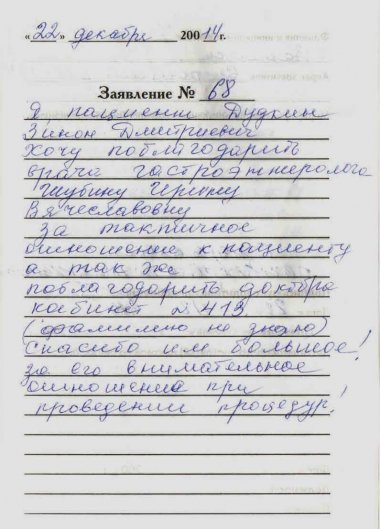 «22» декабря 20014г.
Заявление № 68
Я пациент Дудкин
Зинон Дмитриевич
Хочу поблагодарить
врача гастроэнтеролога
Шубину Ирину
Вячеславовну
за тактичное
отношение к пациенту
а так же
поблагодарить доктора
кабинет № 413
(фамилию не знаю)
Спасибо им большое!
за его внимательное
отношение при
проведении процедур!